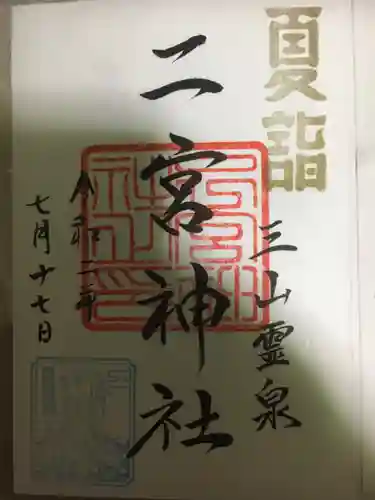 夏詣
三山霊泉
二宮神社
令和二年
七月十七日